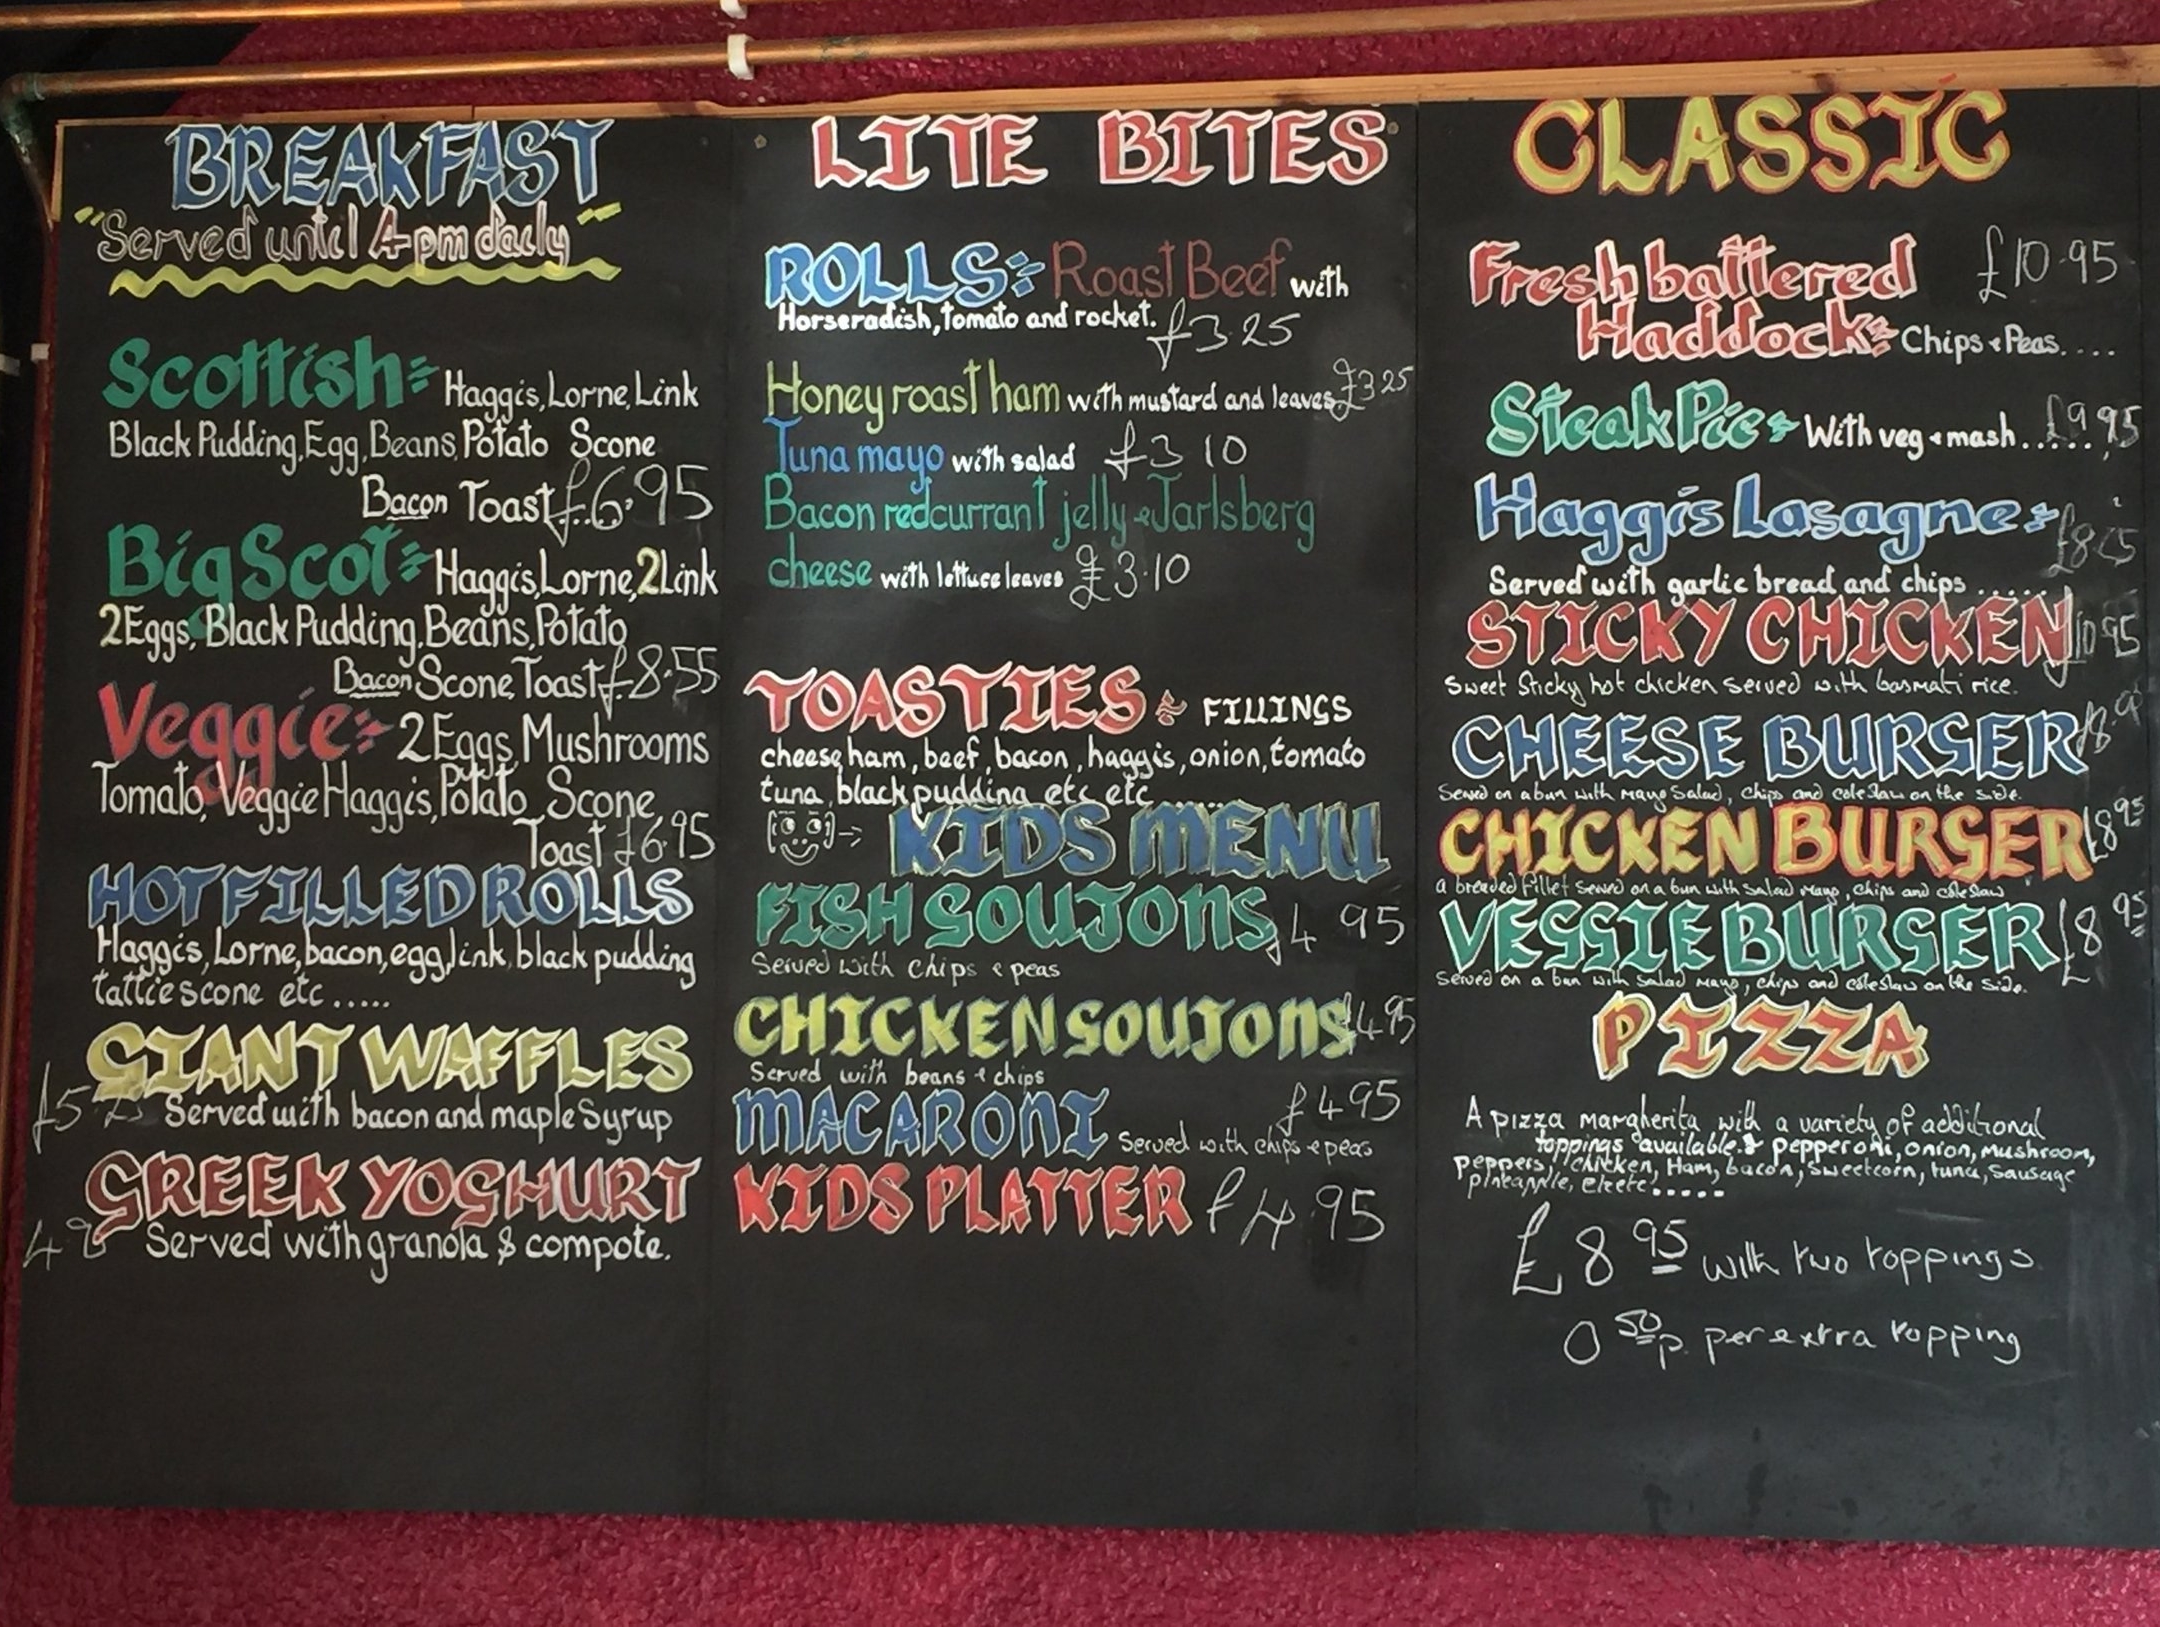 BREAKFAST
"Served until 4pm daily"
Scottish:- Haggis, Lorne, Link
Black Pudding, Egg, Beans, Potato Scone
Bacon Toast £6.95
Big Scot:- Haggis, Lorne, 2 Link
2 Eggs, Black Pudding, Beans, Potato
Bacon Scone, Toast £8.55
Veggie:- 2 Eggs, Mushrooms
Tomato, Veggie Haggis, Potato Scone,
Toast £6.95
HOT FILLED ROLLS
Haggis, Lorne, bacon, egg, link, black pudding
tattie scone etc.....
GIANT WAFFLES
Served with bacon and maple Syrup
GREEK YOGHURT
Served with granola & compote.
LITE BITES
ROLLS:- Roast Beef with
Horseradish, tomato and rocket. £3.25
Honey roast ham with mustard and leaves £3.25
Tuna mayo with salad £3.10
Bacon redcurrant jelly & Jarlsberg
cheese with lettuce leaves £3.10
TOASTIES:- FILLINGS
cheese, ham, beef, bacon, haggis, onion, tomato
tuna, black pudding etc etc ......
KIDS MENU
FISH GOUJONS £4.95
Served with chips & peas
CHICKEN GOUJONS £4.95
Served with beans & chips
MACARONI £4.95
Served with chips & peas
KIDS PLATTER £4.95
CLASSIC
Fresh battered £10.95
Haddock:- Chips & Peas....
Steak Pie:- With veg & mash...... £9.95
Haggis Lasagne:-
Served with garlic bread and chips ......
STICKY CHICKEN £10.95
Sweet Sticky hot chicken served with basmati rice.
CHEESE BURGER
Served on a bun with Mayo Salad, chips and coleslaw on the side.
CHICKEN BURGER £8.95
a breaded fillet served on a bun with salad mayo, chips and coleslaw
VEGGIE BURGER £8.95
Served on a bun with salad mayo, chips and coleslaw on the side.
PIZZA
A pizza margherita with a variety of additional
toppings available:- pepperoni, onion, mushroom,
peppers, chicken, Ham, bacon, sweetcorn, tuna, sausage
pineapple, etc etc.....
£8.95 with two toppings
0.50p. per extra topping